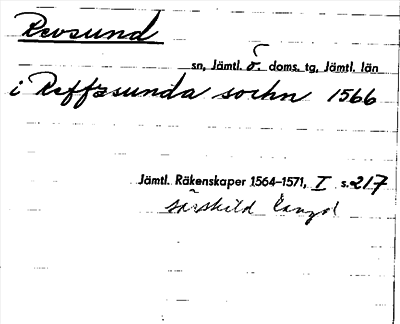 Revsund
sn, Jämtl. ö. doms. tg, Jämtl. län
i Reffzsunda sochn 1566
Jämtl. Räkenskaper 1564–1571, I s. 217
särskild längd